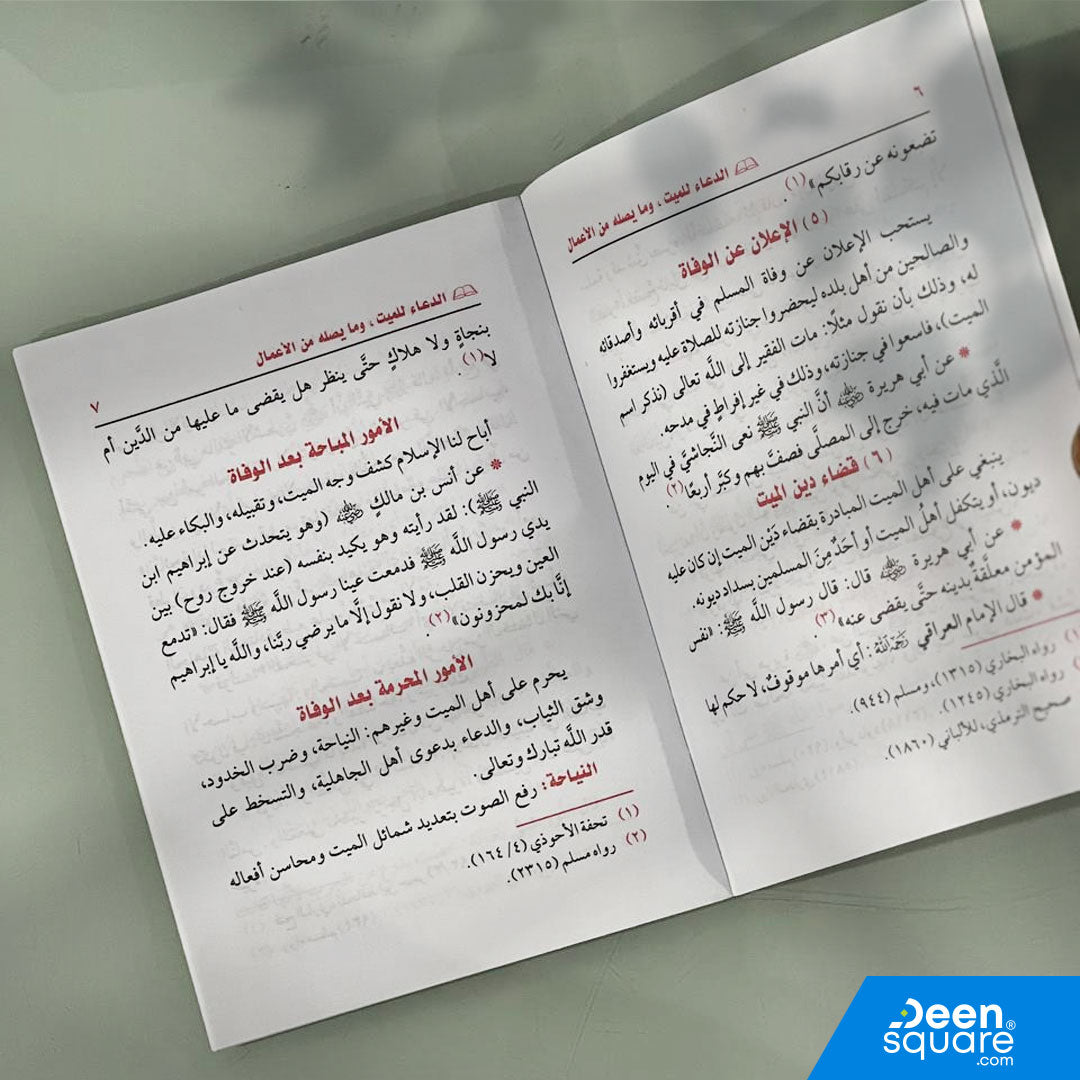 ٦
الدعاء للميت، وما يصله من الأعمال
تضعونه عن رقابكم»(١).
(٥) الإعلان عن الوفاة
يستحب الإعلان عن وفاة المسلم في أقربائه وأصدقائه
والصالحين من أهل بلده ليحضروا جنازته للصلاة عليه ويستغفروا
له، وذلك بأن نقول مثلًا: مات الفقير إلى اللَّه تعالى (نذكر اسم
الميت)، فاسعوا في جنازته، وذلك في غير إفراطٍ في مدحه.
* عن أبي هريرة رضي الله عنه أنَّ النبي ﷺ نعى النَّجاشيَّ في اليوم
الَّذي مات فيه، خرج إلى المصلَّى فصفَّ بهم وكبَّر أربعًا(٢).
(٦) قضاء دين الميت
ينبغي على أهل الميت المبادرة بقضاء دَيْن الميت إن كان عليه
ديون، أو يتكفل أهلُ الميت أو أحَدٌ مِنَ المسلمين بسداد ديونه.
* عن أبي هريرة رضي الله عنه قال: قال رسول اللَّه ﷺ: «نفس
المؤمن معلَّقةٌ بدينه حتَّى يقضى عنه»(٣).
* قال الإمام العراقي رحمه الله: أي أمرها موقوفٌ، لا حكم لها
رواه البخاري (١٣١٥)، ومسلم (٩٤٤).
رواه البخاري (١٢٤٥).
صحيح الترمذي، للألباني (١٨٦٠).
الدعاء للميت، وما يصله من الأعمال
٧
بنجاةٍ ولا هلاكٍ حتَّى ينظر هل يقضى ما عليها من الدَّين أم
لا(١).
الأمور المباحة بعد الوفاة
أباح لنا الإسلام كشف وجه الميت، وتقبيله، والبكاء عليه.
* عن أنس بن مالكٍ رضي الله عنه (وهو يتحدث عن إبراهيم ابن
النبي ﷺ): لقد رأيته وهو يكيد بنفسه (عند خروج روح) بين
يدي رسول اللَّه ﷺ فدمعت عينا رسول اللَّه ﷺ فقال: «تدمع
العين ويحزن القلب، ولا نقول إلَّا ما يرضي ربَّنا، واللَّه يا إبراهيم
إنَّا بك لمحزونون»(٢).
الأمور المحرمة بعد الوفاة
يحرم على أهل الميت وغيرهم: النياحة، وضرب الخدود،
وشق الثياب، والدعاء بدعوى أهل الجاهلية، والتسخط على
قدر اللَّه تبارك وتعالى.
النياحة: رفع الصوت بتعديد شمائل الميت ومحاسن أفعاله
(١) تحفة الأحوذي (٤/ ١٦٤).
(٢) رواه مسلم (٢٣١٥).
Deen
square®
.com